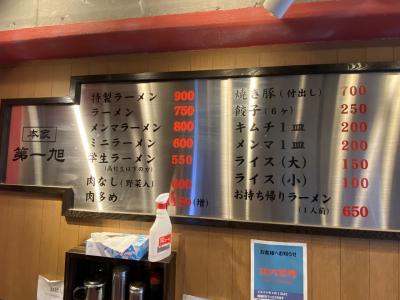 本家
第一旭
特製ラーメン 900
ラーメン 750
メンマラーメン 800
ミニラーメン 600
学生ラーメン 550
(高校生以下の方)
肉なし(野菜入)
肉多め (増)
焼き豚(付出し) 700
餃子(6ヶ) 250
キムチ1皿 200
メンマ1皿 200
ライス(大) 150
ライス(小) 100
お持ち帰りラーメン
(1人前) 650
お客様へお知らせ